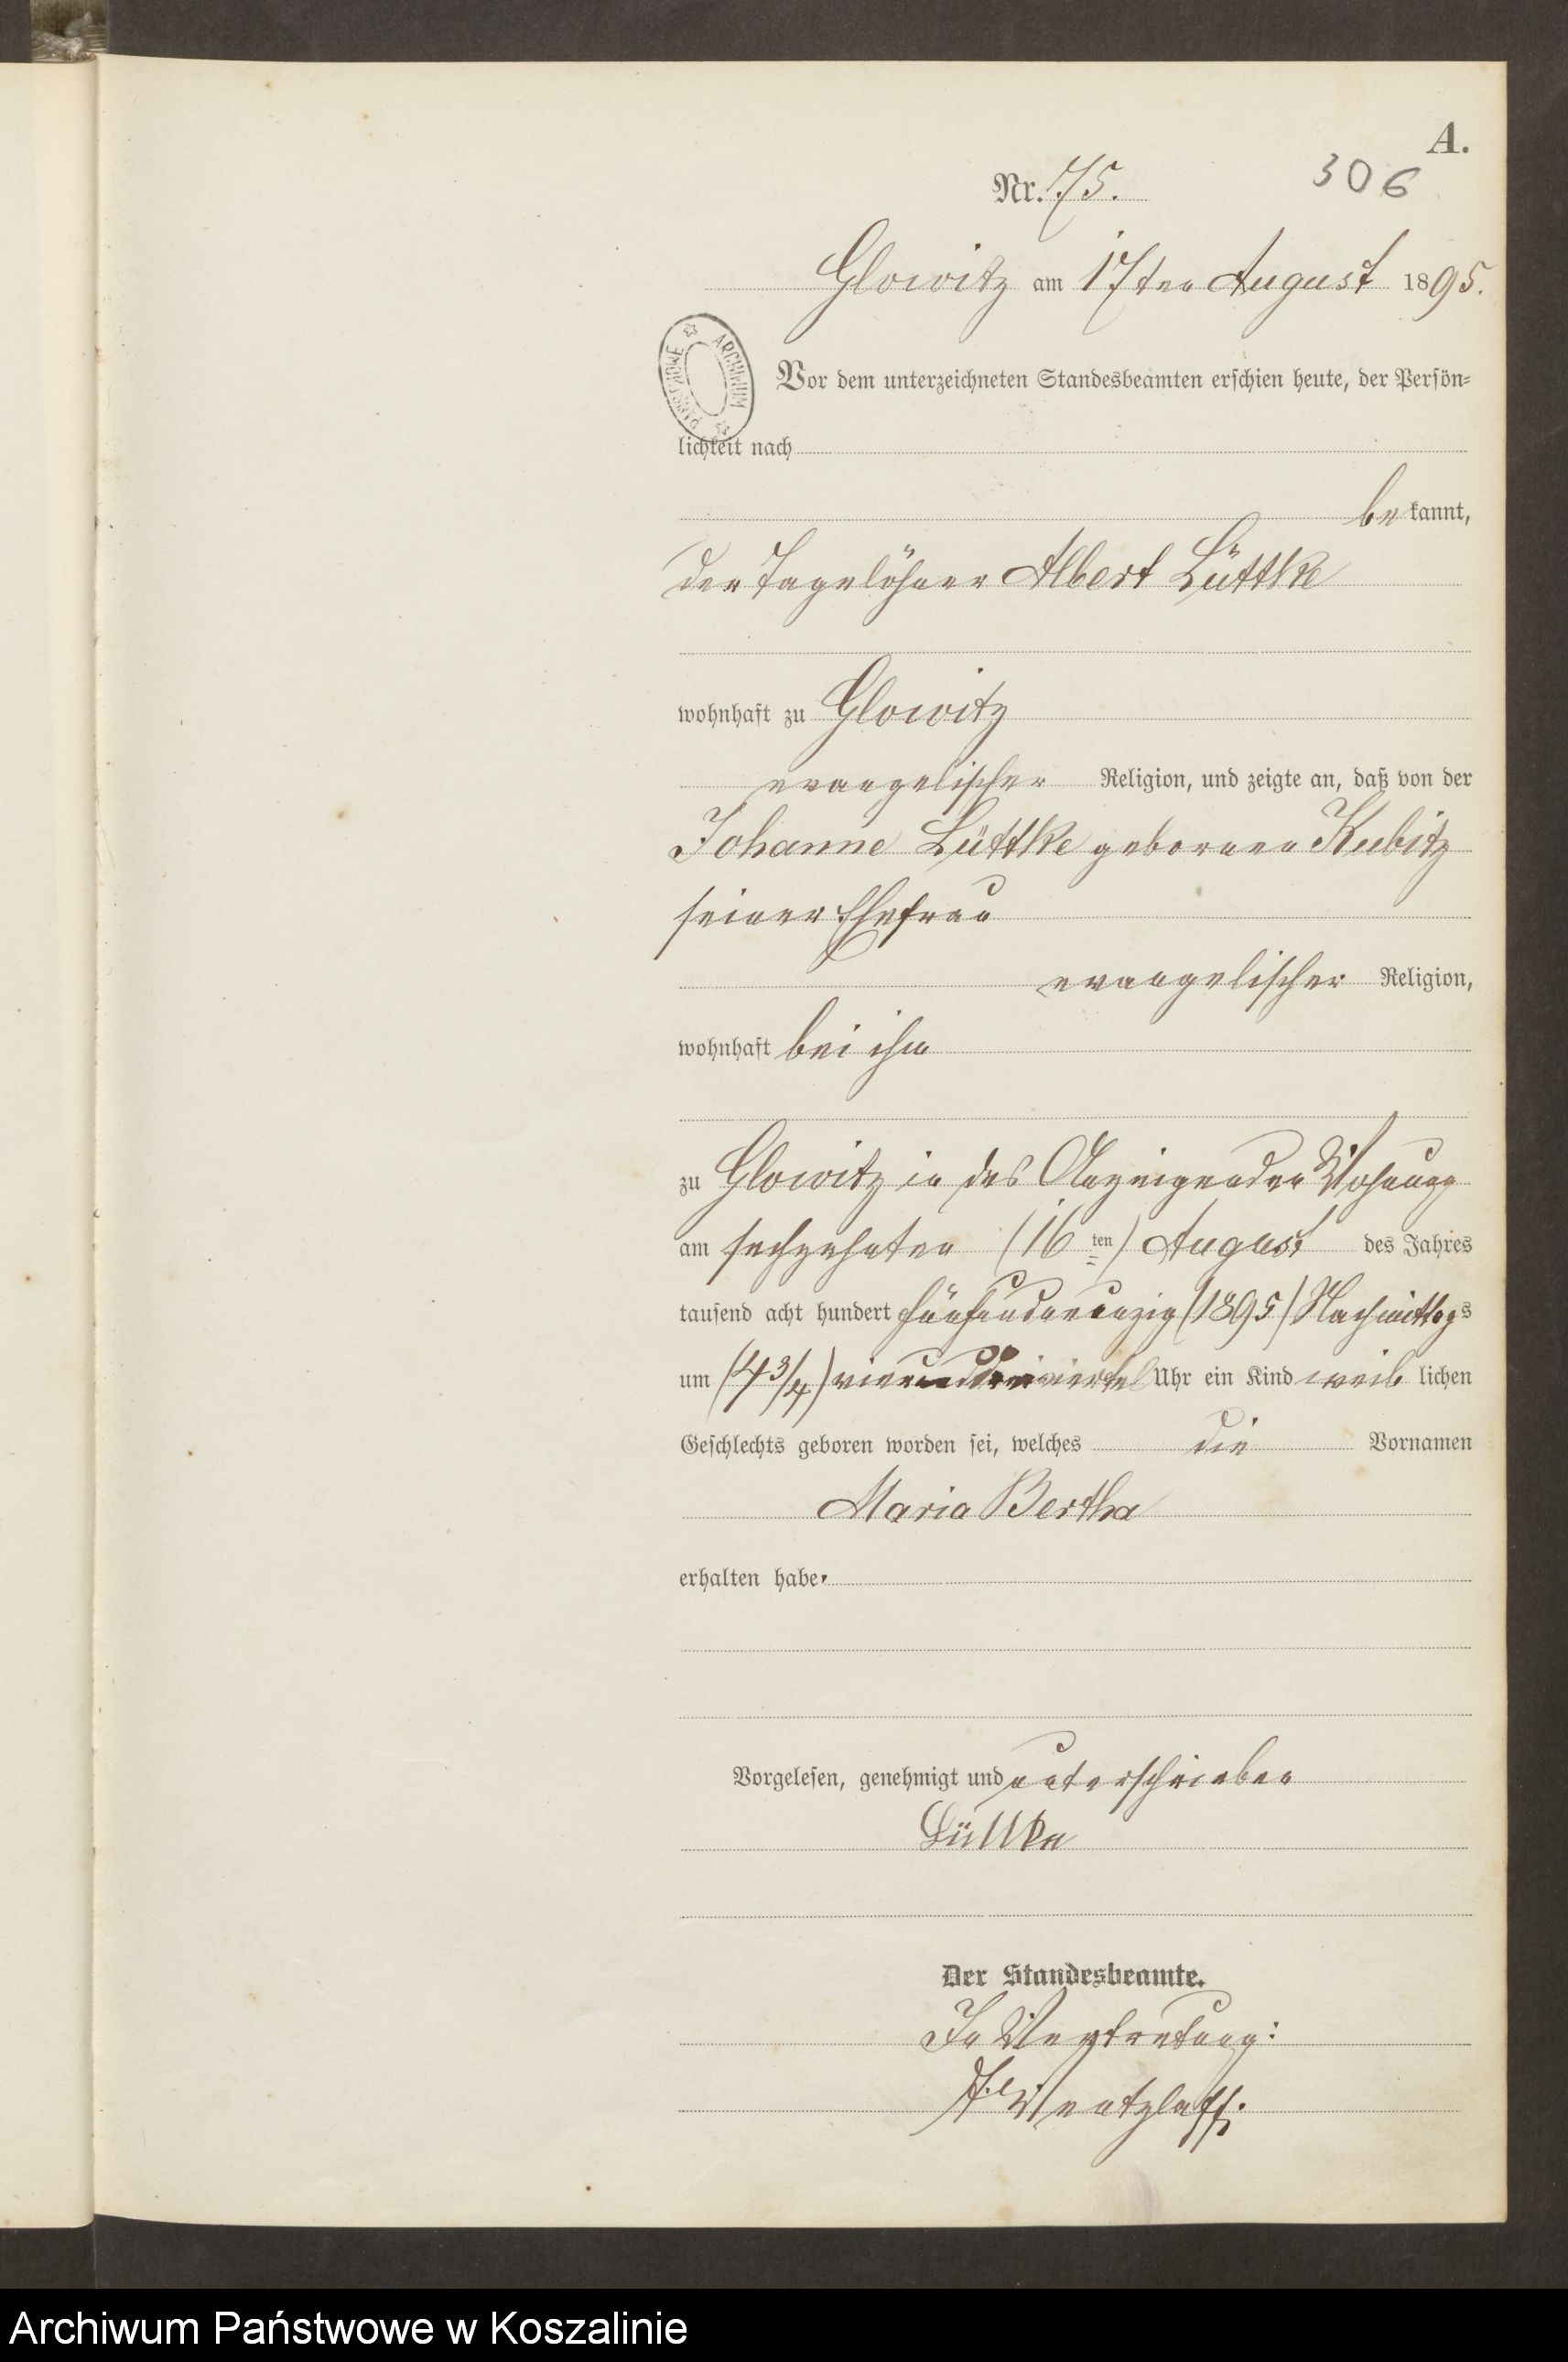 A.
Nr. 75.
306
Glowitz am 17ten August 1895.
ARCHIWUM PAŃSTWOWE
Vor dem unterzeichneten Standesbeamten erschien heute, der Persön-
lichkeit nach
bekannt,
der Tagelöhner Albert Lüttke
wohnhaft zu Glowitz
evangelischer Religion, und zeigte an, daß von der
Johanne Lüttke geborenen Kubitz
seiner Ehefrau
evangelischer Religion,
wohnhaft bei ihm
zu Glowitz in des Anzeigenden Wohnung
am sechzehnten (16ten) August des Jahres
tausend acht hundert fünfundneunzig (1895) Nachmittags
um (4 3/4) vierunddreiviertel Uhr ein Kind weiblichen
Geschlechts geboren worden sei, welches die Vornamen
Maria Bertha
erhalten habe.
Vorgelesen, genehmigt und unterschrieben
Lüttke
Der Standesbeamte.
In Vertretung:
F. Wentzlaff.
Archiwum Państwowe w Koszalinie